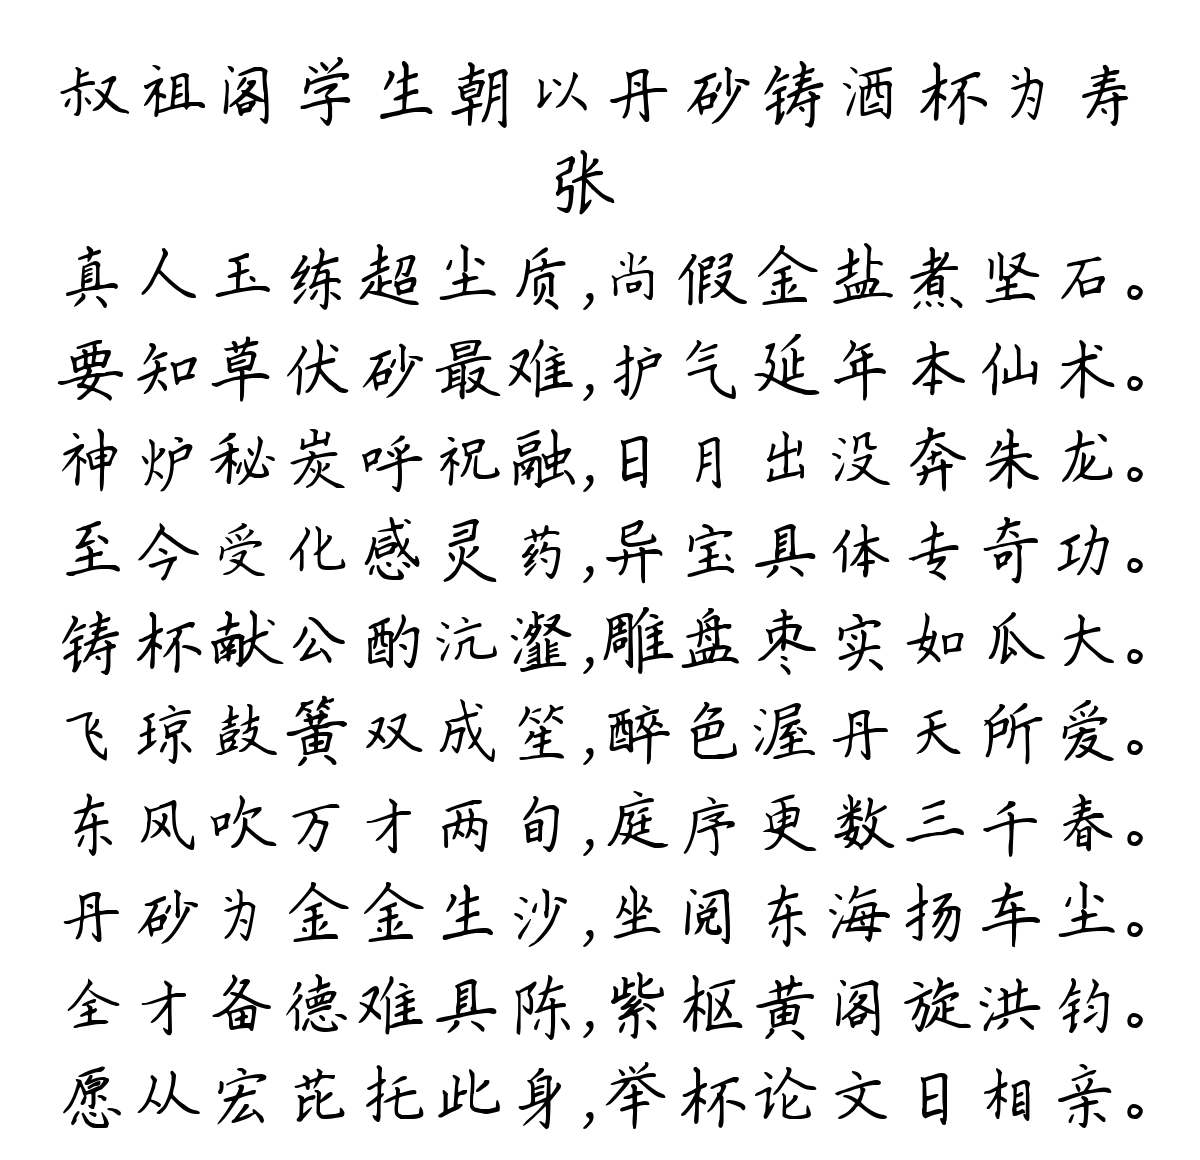 叔祖阁学生朝以丹砂铸酒杯为寿
张
真人玉练超尘质,尚假金盐煮坚石。
要知草伏砂最难,护气延年本仙术。
神炉秘炭呼祝融,日月出没奔朱龙。
至今受化感灵药,异宝具体专奇功。
铸杯献公酌沆瀣,雕盘枣实如瓜大。
飞琼鼓簧双成笙,醉色渥丹天所爱。
东风吹万才两旬,庭序更数三千春。
丹砂为金金生沙,坐阅东海扬车尘。
全才备德难具陈,紫枢黄阁旋洪钧。
愿从宏芘托此身,举杯论文日相亲。